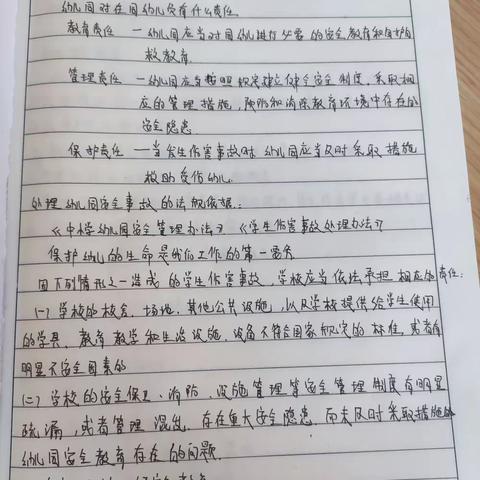 幼儿园对在园幼儿负有什么责任.
教育责任 — 幼儿园应当对园幼儿进行必要的安全教育和自护自
救教育.
管理责任 — 幼儿园应当按照规定建立健全安全制度, 采取相
应的管理措施, 预防和消除教育环境中存在的
安全隐患
保护责任 — 当发生伤害事故时 幼儿园应当及时采取措施
救助受伤幼儿.
处理幼儿园安全事故的法规依据:
《中小学幼儿园安全管理办法》、《学生伤害事故处理办法》
保护幼儿的生命是我们工作的第一要务
因下列情形之一造成的学生伤害事故, 学校应当依法承担相应的责任:
(一) 学校的校舍、场地、其他公共设施, 以及学校提供给学生使用
的学具、教育教学和生活设施、设备不符合国家规定的标准, 或者有
明显不安全因素的
(二) 学校的安全保卫、消防、设施管理等安全管理制度有明显
疏漏, 或者管理混乱, 存在重大安全隐患, 而未及时采取措施的
幼儿园安全教育存在的问题.